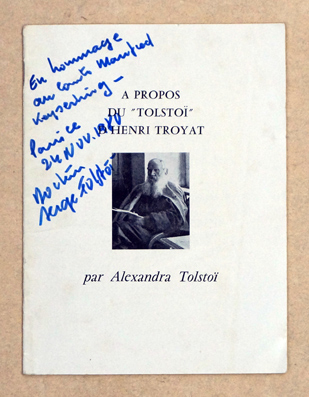 En hommage
au Comte Manfred
Keyserling –
24 NOV. 1980
Serge Tolstoï
A PROPOS
DU "TOLSTOÏ"
D'HENRI TROYAT
par Alexandra Tolstoï